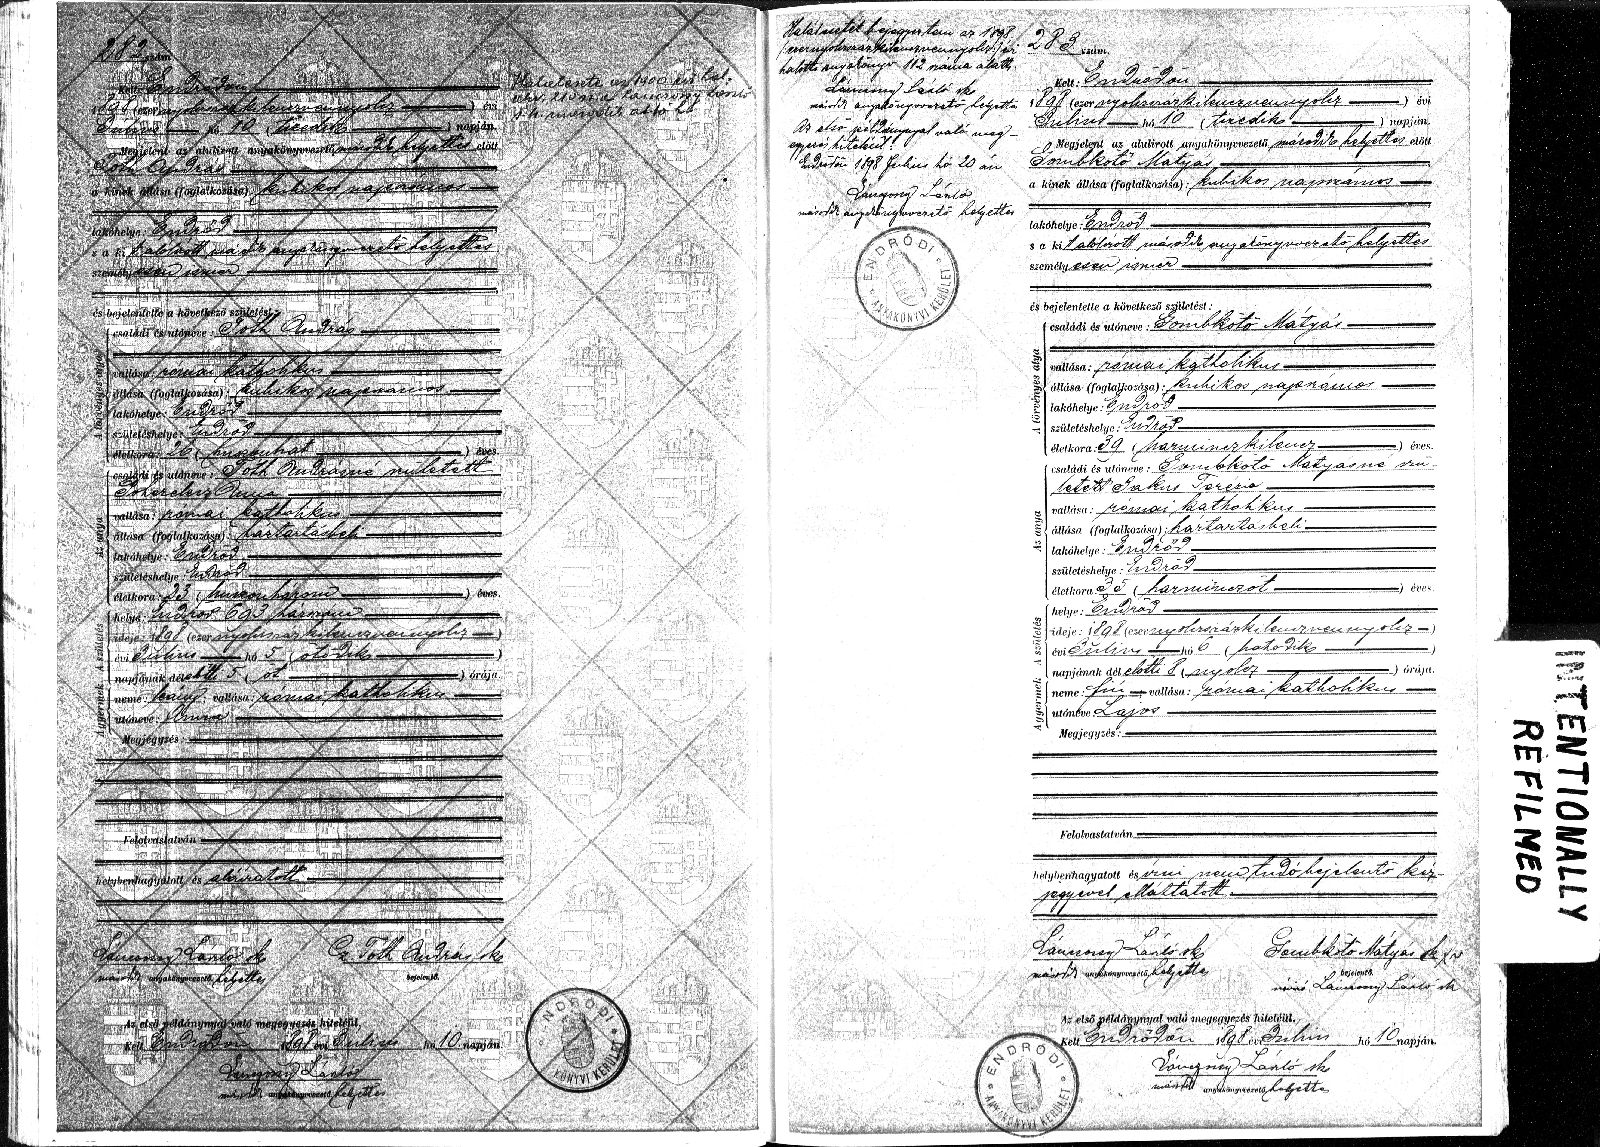 282 szám
Kelt Endrődön
1898 (ezernyolczszázkilenczvennyolcz) évi
Julius hó 10 (tizedik) napján.
Megjelent az alulirott anyakönyvvezető második helyettes előtt
Tóth András
a kinek állása (foglalkozása): kubikos napszámos
lakóhelye: Endrőd
s a kit alólirott második anyakönyvvezető helyettes
személyesen ismer
és bejelentette a következő születést:
A törvényes atya
családi és utóneve: Tóth András
vallása: római katholikus
állása (foglalkozása): kubikos napszámos
lakóhelye: Endrőd
születéshelye: Endrőd
életkora: 26 (huszonhat) éves.
Az anya
családi és utóneve: Tóth Andrásné született
vallása: római katholikus
állása (foglalkozása): háztartásbeli
lakóhelye: Endrőd
születéshelye: Endrőd
életkora: 23 (huszonhárom) éves.
A születés
helye: Endrőd 693 házszám
ideje: 1898 (ezernyolczszázkilenczvennyolcz)
évi Julius hó 5 (ötödik)
napjának délelőtti 5 (öt) órája
A gyermek
neme: leány vallása: római katholikus
utóneve:
Megjegyzés:
Felolvastatván
helybenhagyatott és aláiratott
Lánczosy László sk
második anyakönyvvezető helyettes
Cz Tóth András sk
bejelentő.
Az első példánynyal való megegyezés hiteléül,
Kelt Endrődön 1898 évi Julius hó 10 napján.
Lánczosy László
második anyakönyvvezető helyettes
ENDRŐDI
KÖNYVI KERÜLET
Halálesetét bejegyeztem az 1898
(ezernyolczszázkilenczvennyolcz) évi
halotti anyakönyv 112 száma alatt
Lánczosy László sk
második anyakönyvvezető helyettes
Az első példánynyal való meg-
egyezés hiteléül
Endrődön 1898 Julius hó 20 án
Lánczosy László
második anyakönyvvezető helyettes
ENDRŐDI
ANYAKÖNYVI KERÜLET
283 szám.
Kelt: Endrődön
1898 (ezernyolczszázkilenczvennyolcz) évi
Julius hó 10 (tizedik) napján.
Megjelent az alulirott anyakönyvvezető második helyettes előtt
Gombkötő Mátyás
a kinek állása (foglalkozása): kubikos napszámos
lakóhelye: Endrőd
s a kit alólirott második anyakönyvvezető helyettes
személyesen ismer
és bejelentette a következő születést:
A törvényes atya
családi és utóneve: Gombkötő Mátyás
vallása: római katholikus
állása (foglalkozása): kubikos napszámos
lakóhelye: Endrőd
születéshelye: Endrőd
életkora: 39 (harminczkilencz) éves.
Az anya
családi és utóneve: Gombkötő Mátyásné szü-
letett Jakus Terézia
vallása: római katholikus
állása (foglalkozása): háztartásbeli
lakóhelye: Endrőd
születéshelye: Endrőd
életkora 35 (harminczöt) éves.
A születés
helye: Endrőd
ideje: 1898 (ezernyolczszázkilenczvennyolcz)
évi Julius hó 6 (hatodik)
napjának délelőtti 8 (nyolcz) órája.
A gyermek
neme: fiú vallása: római katholikus
utóneve: Lajos
Megjegyzés:
Felolvastatván
helybenhagyatott és irni nem tudó bejelentő kéz-
jegyével elláttatott
Lánczosy László sk
második anyakönyvvezető helyettes
Gombkötő Mátyás
bejelentő
névíró Lánczosy László sk
Az első példánynyal való megegyezés hiteléül,
Kelt Endrődön 1898 évi Julius hó 10 napján.
Lánczosy László sk
második anyakönyvvezető helyettes
ENDRŐDI
ANYAKÖNYVI KERÜLET
INTENTIONALLY
REFILMED